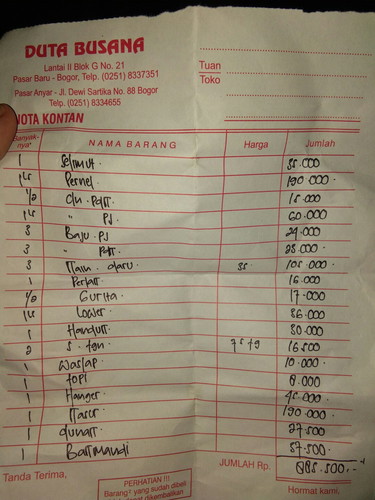 DUTA BUSANA
Lantai II Blok G No. 21
Pasar Baru - Bogor, Telp. (0251) 8337351
Pasar Anyar - Jl. Dewi Sartika No. 88 Bogor
Telp. (0251) 8334655
Tuan
Toko
NOTA KONTAN
Banyak-nya NAMA BARANG Harga Jumlah
1 Selimut 35.000
Pernel 190.000
1/2 15.000
" PJ 60.000
3 Baju PJ 29.000
3 " 28.000
3 35 105.000
1 16.000
1/2 Gurita 17.000
Lower 36.000
1 Handuk 30.000
2 S. 7 5 + 9 16.500
1 Waslap 10.000
1 topi 8.000
1 Hanger 45.000
1 190.000
1 27.500
1 57.500
JUMLAH Rp. 885.500
Tanda Terima,
PERHATIAN !!!
Barang² yang sudah dibeli
tidak dapat dikembalikan
Hormat kami,